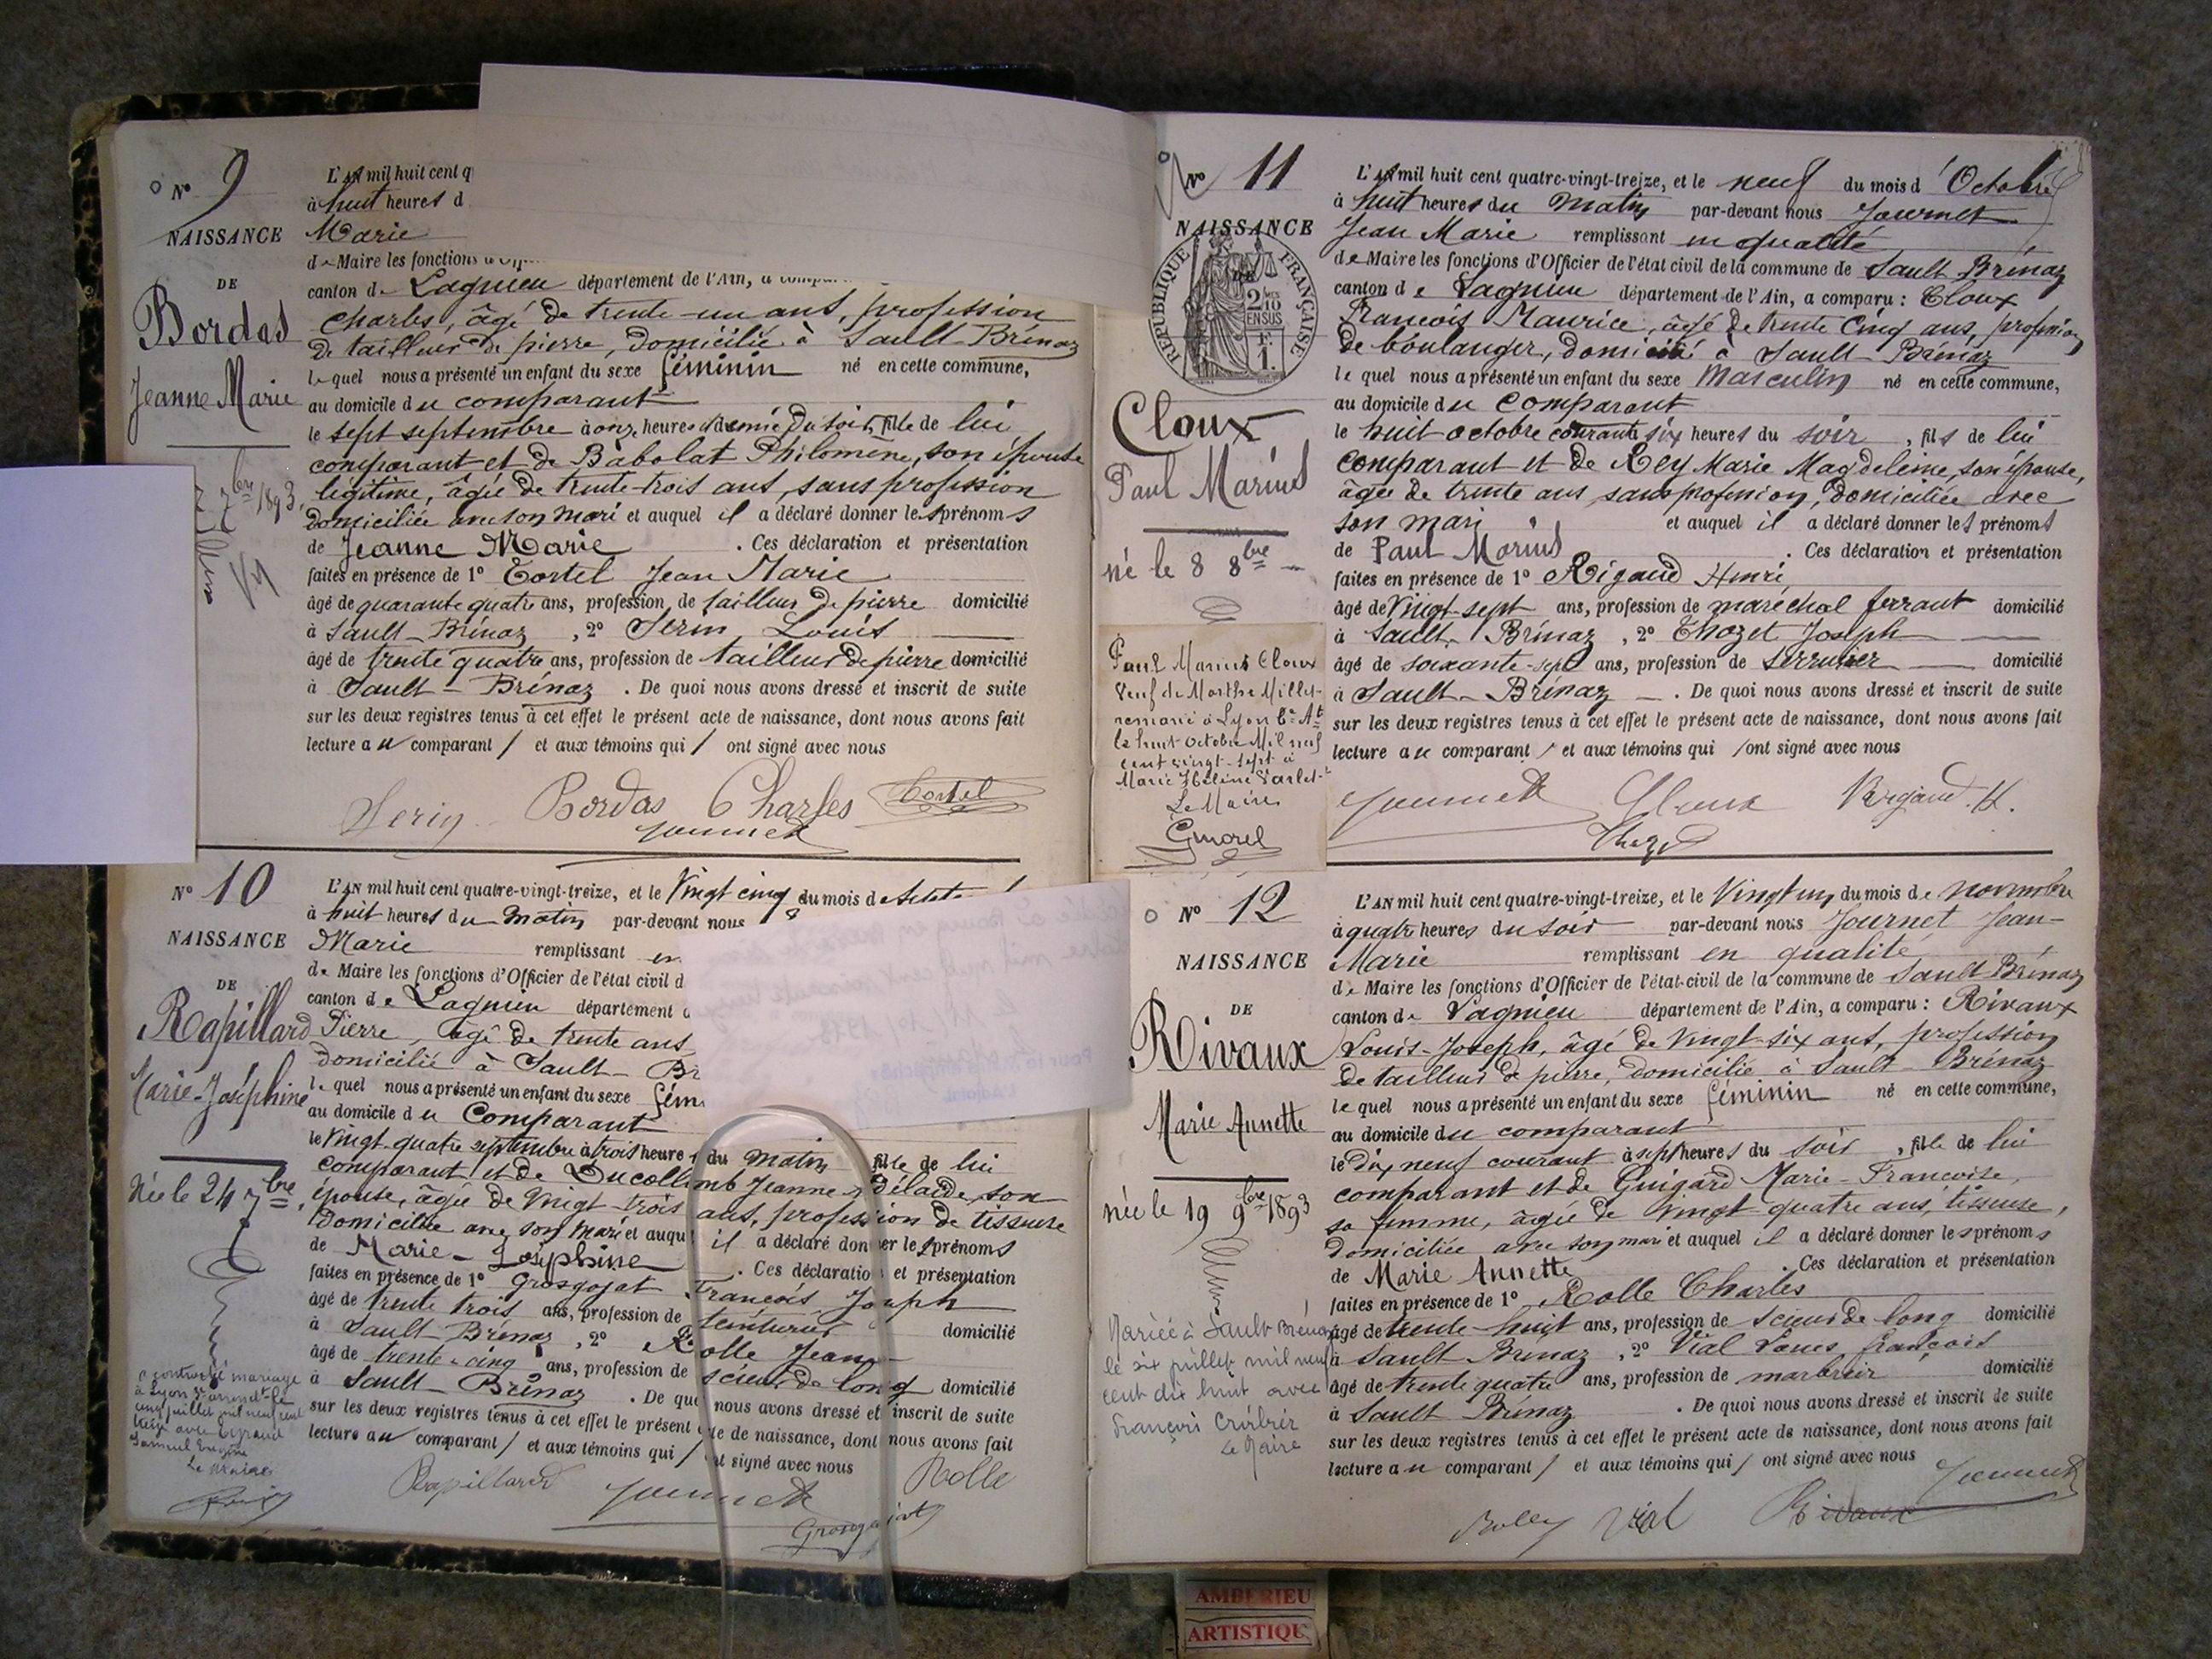 N° 9
NAISSANCE
DE
Bordas
Jeanne Marie
7bre 1893
L'AN mil huit cent q
à huit heures d
Marie
de Maire les fonctions
canton de Lagnieu département de l'Ain, a
Charles, âgé de trente-un ans, profession
De tailleur de pierre, domicilié à Sault-Brénaz
lequel nous a présenté un enfant du sexe féminin né en cette commune,
au domicile du comparant
le sept septembre à onze heures et demie du soir, fille de lui
comparant et de Babolat Philomène, son épouse
légitime, âgée de trente-trois ans, sans profession
domiciliée avec son mari et auquel il a déclaré donner les prénoms
de Jeanne Marie . Ces déclaration et présentation
faites en présence de 1° Tortel Jean Marie
âgé de quarante quatre ans, profession de tailleur de pierre domicilié
à Sault-Brénaz , 2° Serin Louis
âgé de trente quatre ans, profession de tailleur de pierre domicilié
à Sault-Brénaz . De quoi nous avons dressé et inscrit de suite
sur les deux registres tenus à cet effet le présent acte de naissance, dont nous avons fait
lecture au comparant / et aux témoins qui / ont signé avec nous
Serin Bordas Charles Tortel
Journet
N° 10
NAISSANCE
DE
Rapillard
Marie-Joséphine
Née le 24 7bre
a contracté mariage
à Lyon arrondt le
cinq juillet mil neuf cent
treize avec
Samuel Eugène
Le Maire
L'AN mil huit cent quatre-vingt-treize, et le Vingt cinq du mois de
à huit heures du matin par-devant nous
Marie remplissant en
de Maire les fonctions d'Officier de l'état civil d
canton de Lagnieu département
Pierre, âgé de trente ans
domicilié à Sault-Br
lequel nous a présenté un enfant du sexe fém
au domicile du Comparant
le Vingt-quatre septembre à trois heures du matin fille de lui
comparant et de Ducollomb Jeanne Adélaïde, son
épouse, âgée de vingt-trois ans, profession de tisseuse
domiciliée avec son mari et auqu il a déclaré donner les prénoms
de Marie-Joséphine . Ces déclaration et présentation
faites en présence de 1° Grosgojat François Joseph
âgé de trente trois ans, profession de teinturier domicilié
à Sault-Brénaz , 2° Rolle Jean
âgé de trente-cinq ans, profession de scieur de long domicilié
à Sault-Brénaz . De quoi nous avons dressé et inscrit de suite
sur les deux registres tenus à cet effet le présent acte de naissance, dont nous avons fait
lecture au comparant / et aux témoins qui / ont signé avec nous
Rapillard Journet Rolle
Grosgojat
N° 11
NAISSANCE
DE
RÉPUBLIQUE FRANÇAISE
2/10 EN SUS
1F.
Cloux
Paul Marius
né le 8 8bre
Paul Marius Cloux
Veuf de Marthe Millet
remarié à Lyon 6e At
le huit Octobre Mil neuf
cent vingt-sept à
Marie Hélène Varlet
Le Maire
Gmorel
L'AN mil huit cent quatre-vingt-treize, et le neuf du mois d'Octobre
à huit heures du matin par-devant nous Journet
Jean Marie remplissant en qualité
de Maire les fonctions d'Officier de l'état civil de la commune de Sault Brénaz
canton de Lagnieu département de l'Ain, a comparu : Cloux
François Maurice, âgé de trente cinq ans, profession
de boulanger, domicilié à Sault-Brénaz
lequel nous a présenté un enfant du sexe Masculin né en cette commune,
au domicile du comparant
le huit octobre courant à six heures du soir , fils de lui
comparant et de Rey Marie Magdeleine, son épouse,
âgée de trente ans, sans profession, domiciliée avec
son mari et auquel il a déclaré donner les prénoms
de Paul Marius . Ces déclaration et présentation
faites en présence de 1° Rigaud Henri
âgé de vingt-sept ans, profession de maréchal ferrant domicilié
à Sault-Brénaz , 2° Thozet Joseph
âgé de soixante-sept ans, profession de serrurier domicilié
à Sault-Brénaz . De quoi nous avons dressé et inscrit de suite
sur les deux registres tenus à cet effet le présent acte de naissance, dont nous avons fait
lecture au comparant / et aux témoins qui / ont signé avec nous
Journet Cloux Rigaud. H.
Thozet
N° 12
NAISSANCE
DE
Rivaux
Marie Annette
née le 19 9bre 1893
Mariée à Sault Brénaz
le six juillet mil neuf
cent dix huit avec
François
Le Maire
L'AN mil huit cent quatre-vingt-treize, et le Vingt un du mois de novembre
à quatre heures du soir par-devant nous Journet Jean-
Marie remplissant en qualité
de Maire les fonctions d'Officier de l'état-civil de la commune de Sault Brénaz
canton de Lagnieu département de l'Ain, a comparu : Rivaux
Louis-Joseph, âgé de vingt-six ans, profession
de tailleur de pierre, domicilié à Sault-Brénaz
lequel nous a présenté un enfant du sexe féminin né en cette commune,
au domicile du comparant
le dix neuf courant à sept heures du soir , fille de lui
comparant et de Guigard Marie-Françoise,
sa femme, âgée de vingt quatre ans, tisseuse,
domiciliée avec son mari et auquel il a déclaré donner les prénoms
de Marie Annette . Ces déclaration et présentation
faites en présence de 1° Rolle Charles
âgé de trente-huit ans, profession de scieur de long domicilié
à Sault Brénaz , 2° Vial Louis François
âgé de trente quatre ans, profession de marbrier domicilié
à Sault Brénaz . De quoi nous avons dressé et inscrit de suite
sur les deux registres tenus à cet effet le présent acte de naissance, dont nous avons fait
lecture au comparant / et aux témoins qui / ont signé avec nous Journet
Rolle Vial Rivaux
AMBERIEU
ARTISTIQU